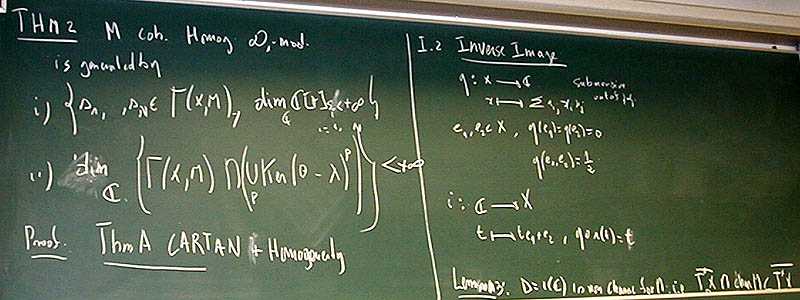 THM 2 M coh. Homog. D-mod.
is generated by
i) { s1, , sN ∈ Γ(X,M), dim_ℂ ℂ[θ]si < +∞ }
i=1, , N
ii) dim_ℂ { Γ(X,M) ∩ (∪_p Ker(θ - λ)^p) } < +∞
Proof. Thm A CARTAN + Homogeneity
I.2 Inverse Image
q: X → ℂ submersive
x ↦ Σ xi xj out of
e1, e2 ∈ X, q(e1)=q(e2)=0
q(e1,e2)=1/2
i: ℂ → X
t ↦ te1+e2, q∘i(t)=t
D = i(ℂ) is non char for M. i.e